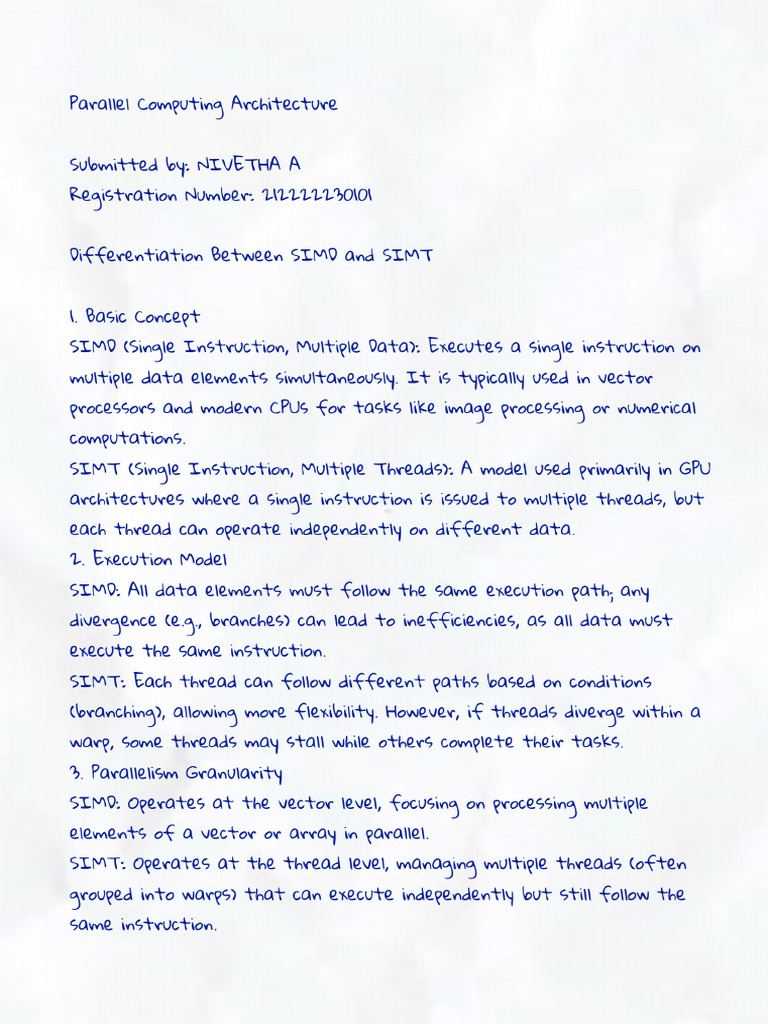 Parallel Computing Architecture
Submitted by: NIVETHA A
Registration Number: 212222230101
Differentiation Between SIMD and SIMT
1. Basic Concept
SIMD (Single Instruction, Multiple Data): Executes a single instruction on
multiple data elements simultaneously. It is typically used in vector
processors and modern CPUs for tasks like image processing or numerical
computations.
SIMT (Single Instruction, Multiple Threads): A model used primarily in GPU
architectures where a single instruction is issued to multiple threads, but
each thread can operate independently on different data.
2. Execution Model
SIMD: All data elements must follow the same execution path; any
divergence (e.g., branches) can lead to inefficiencies, as all data must
execute the same instruction.
SIMT: Each thread can follow different paths based on conditions
(branching), allowing more flexibility. However, if threads diverge within a
warp, some threads may stall while others complete their tasks.
3. Parallelism Granularity
SIMD: Operates at the vector level, focusing on processing multiple
elements of a vector or array in parallel.
SIMT: Operates at the thread level, managing multiple threads (often
grouped into warps) that can execute independently but still follow the
same instruction.